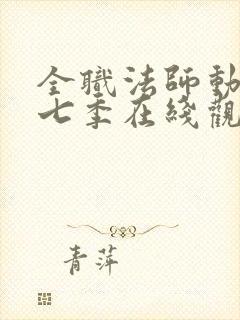 全職法師動
七季在綫觀
青萍